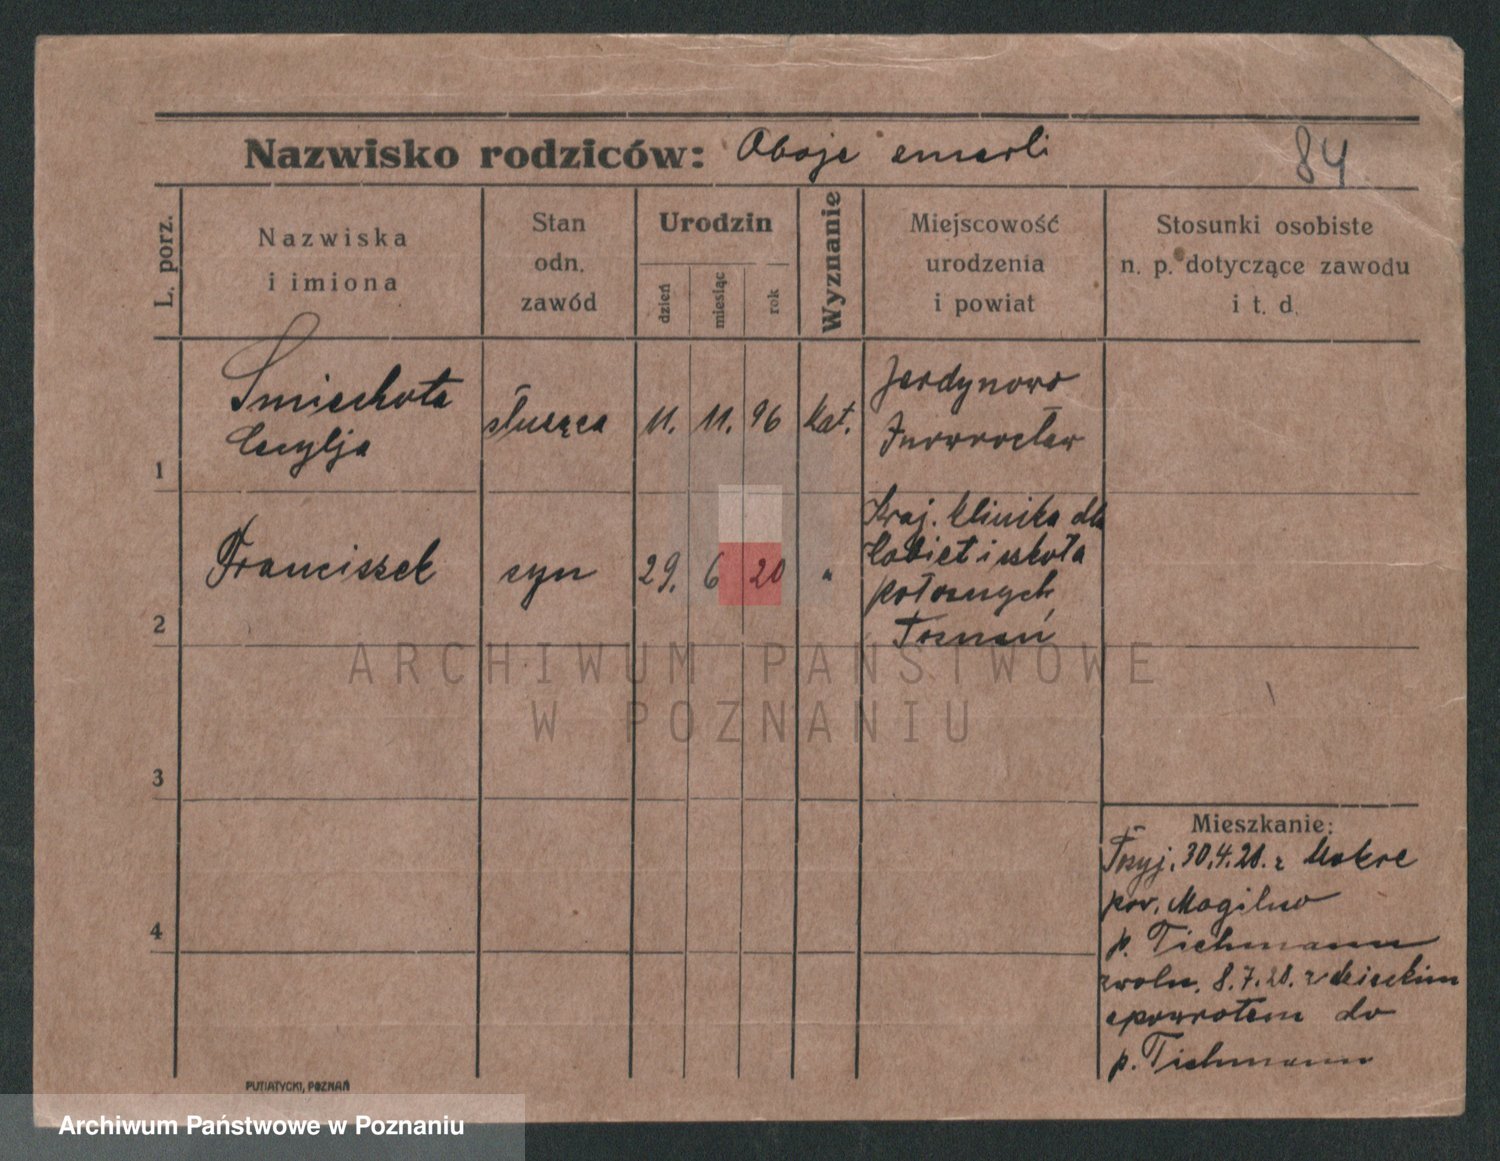 Nazwisko rodziców: Oboje zmarli
84
L. porz.
Nazwiska
i imiona
Stan
odn.
zawód
Urodzin
dzień
miesiąc
rok
Wyznanie
Miejscowość
urodzenia
i powiat
Stosunki osobiste
n. p. dotyczące zawodu
i t. d.
1
Śmiechota
Cecylja
służąca
11. 11. 96
kat.
Jerdynowo
Inowrocław
2
Franciszek
syn
29. 6 20
"
Kraj. klinika dla
kobiet i szkoła
położnych
Poznań
3
4
Mieszkanie:
Przyj. 30.4.20. z Mokre
pow. Mogilno
p. Tichmann
zwoln. 8.7.20. z dzieckim
spowrotem do
p. Tichmann
PUTIATYCKI, POZNAŃ
ARCHIWUM PAŃSTWOWE
W POZNANIU
Archiwum Państwowe w Poznaniu